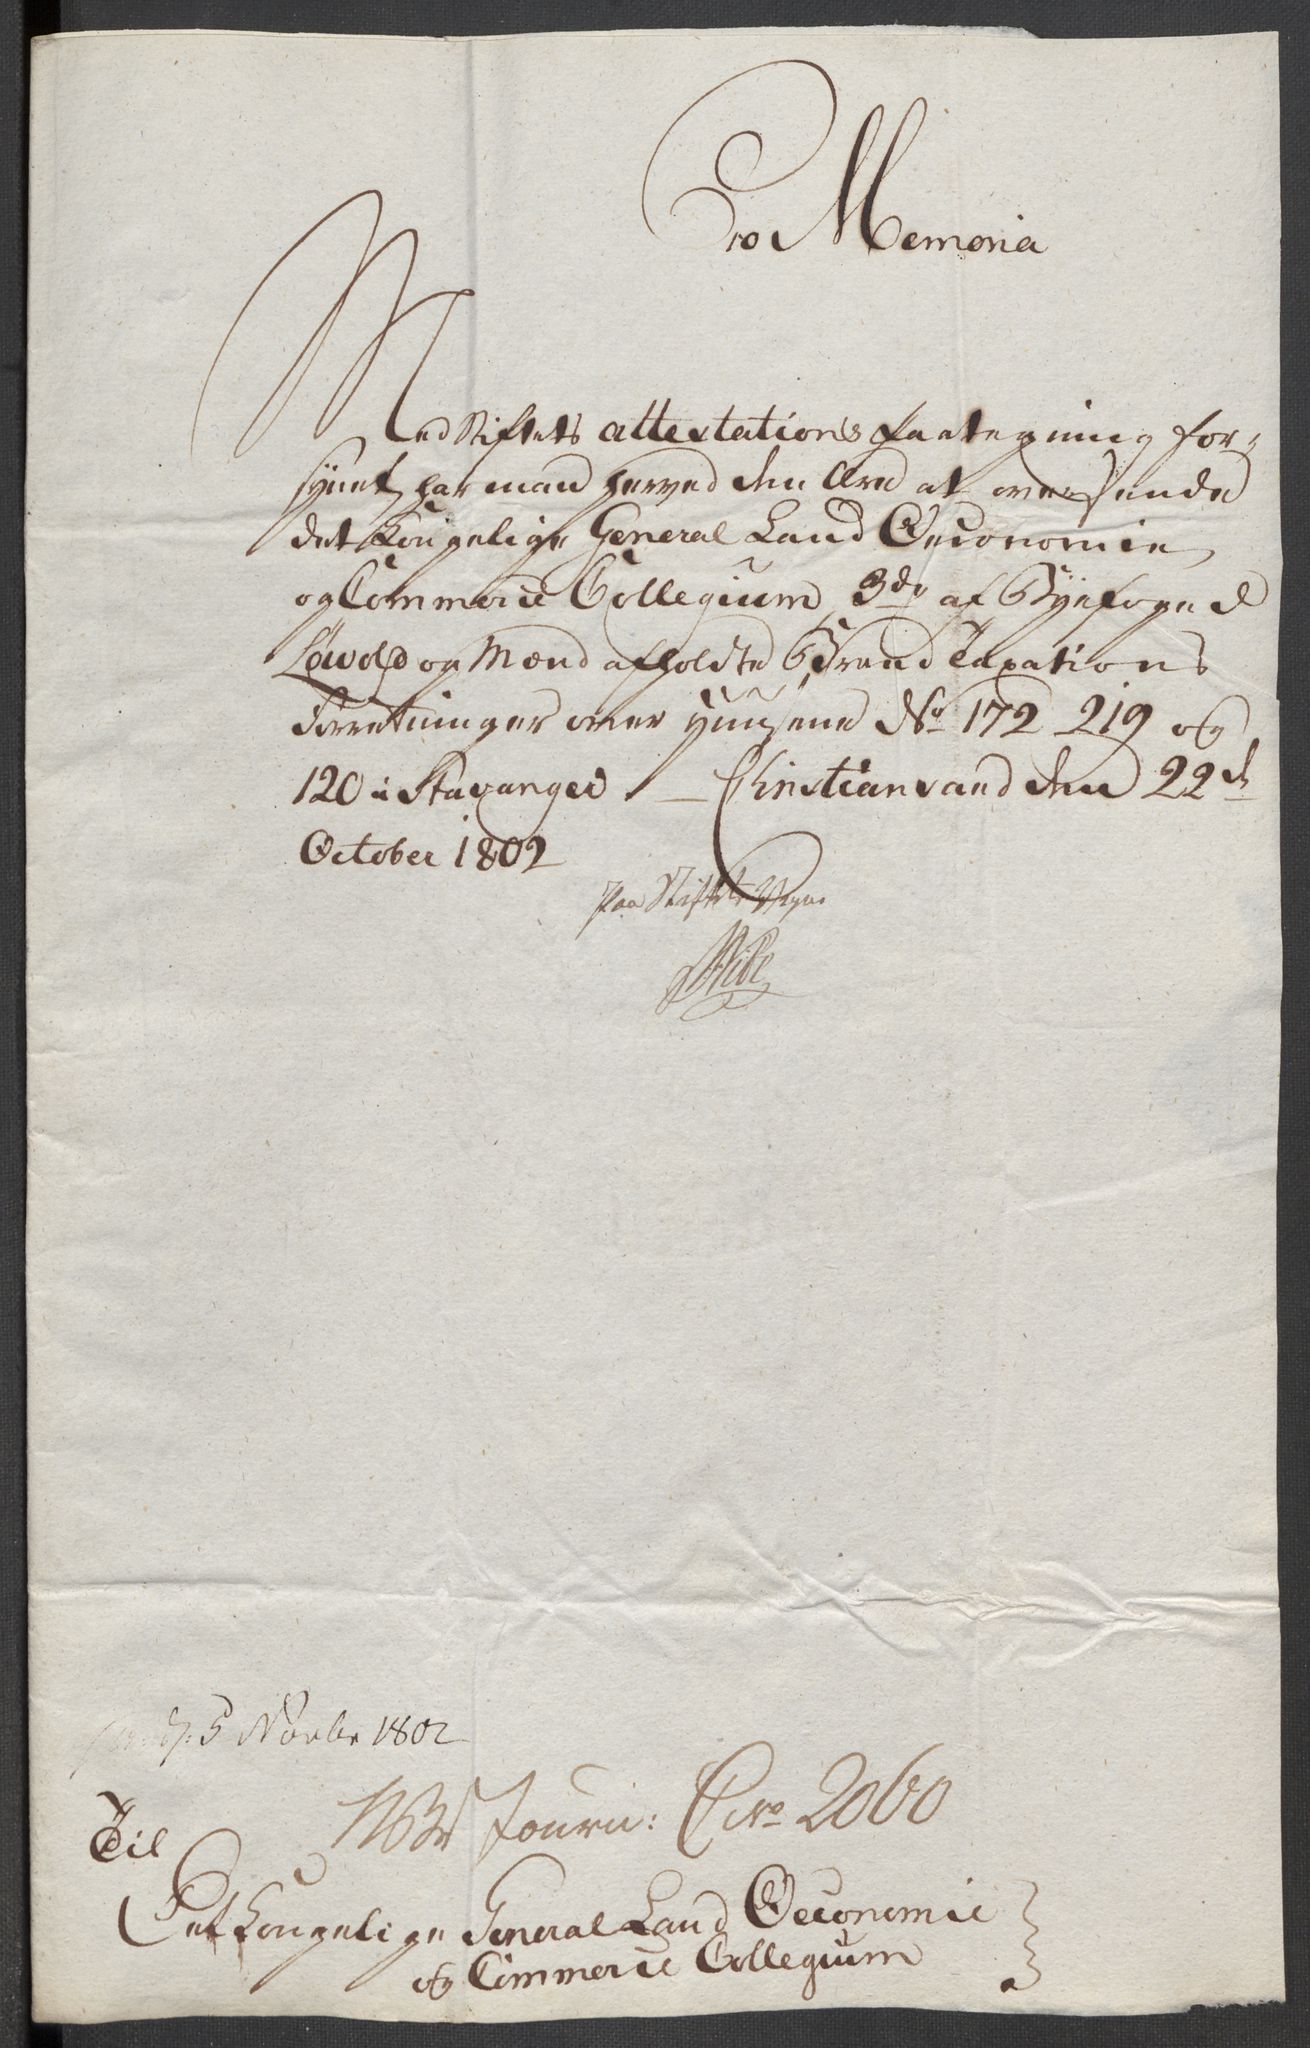 Pro Memoria
Med Stiftets attestations Paategning for-
synet, har man herved den Ære at oversende
det Kongelige General Land Oeconomie
og Commerce Collegium 3de af Byefoged
Løwold og Mænd afholdte Brand Taxations
Forretninger over Huusene No 172 219 og
120 i Stavanger. — Christiansand den 22d
October 1802
Paa Stiftets Vegne
5 Novbr 1802
Journ: No 2060
Til
Det Kongelige General Land Oeconomie
og Commerce Collegium